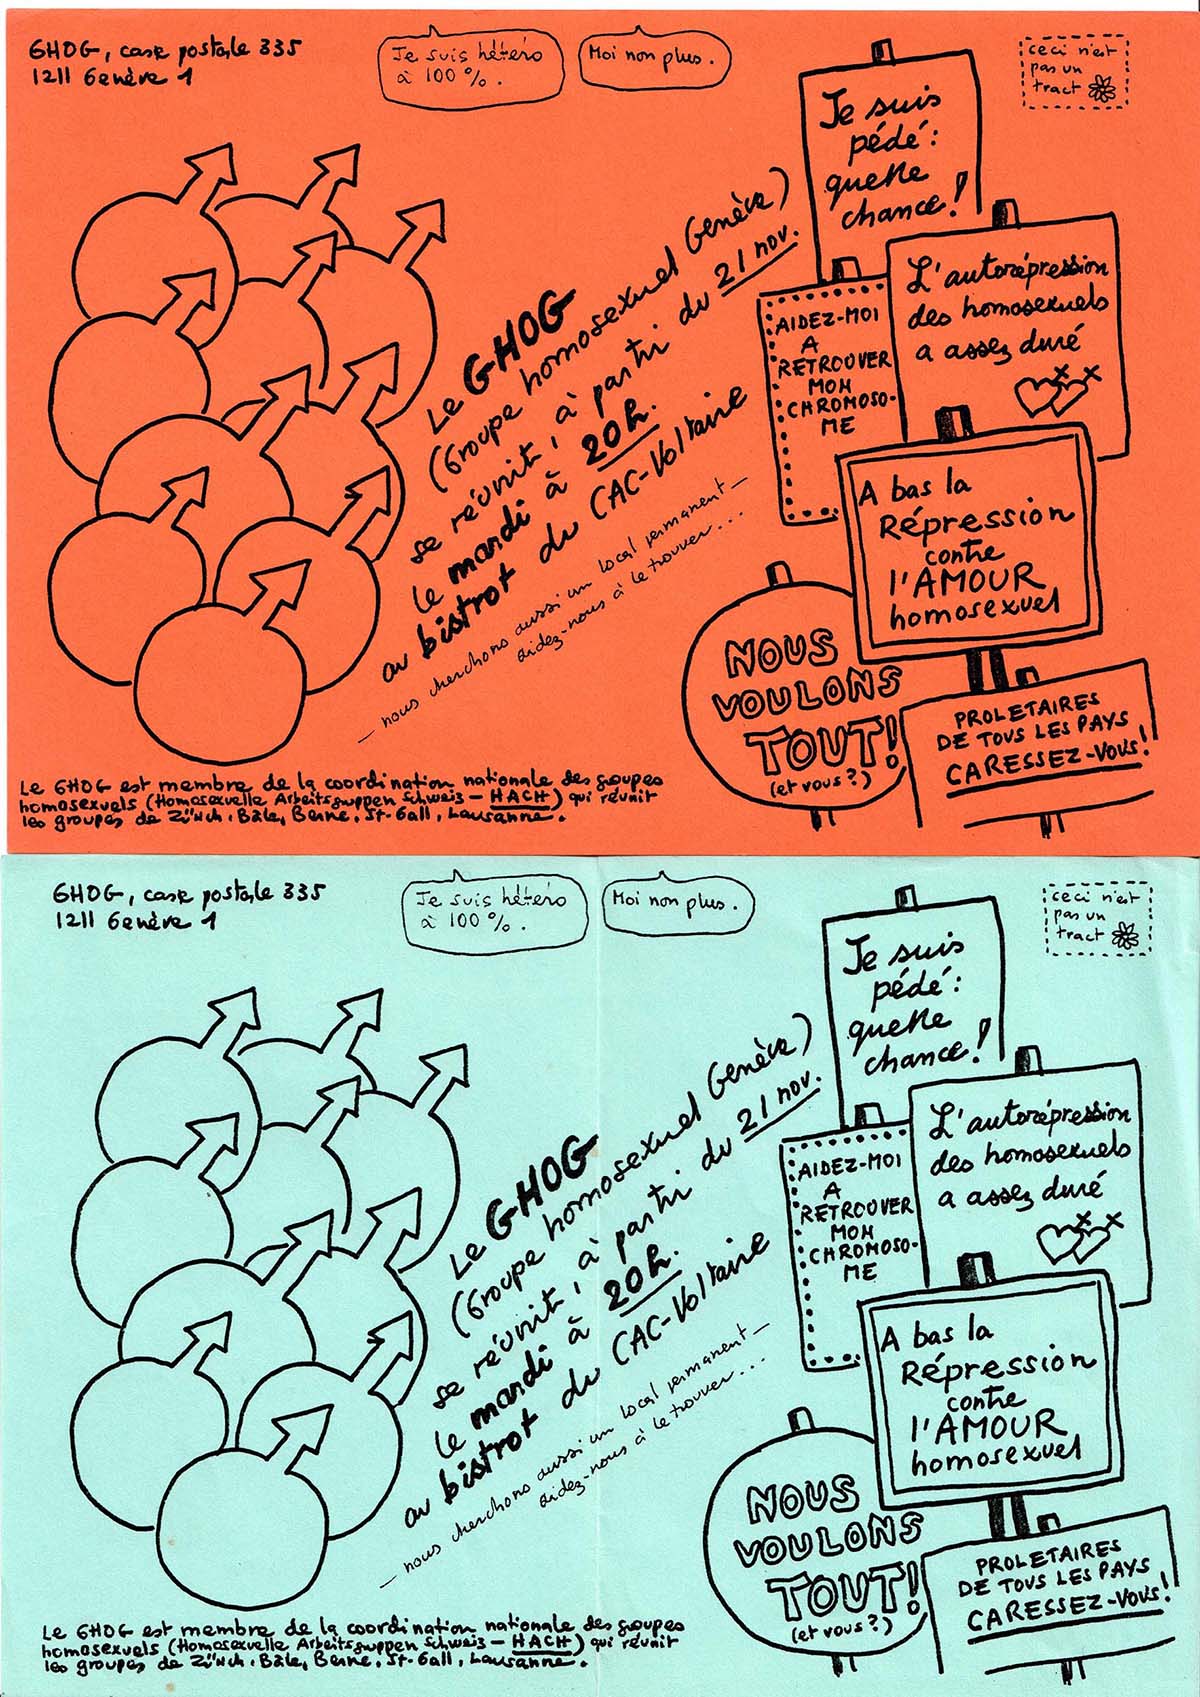 GHOG, case postale 335
1211 Genève 1
Je suis hétéro
à 100 %.
Moi non plus.
ceci n'est
pas un
tract
Je suis
pédé :
quelle
chance !
L'autorépression
des homosexuels
a assez duré
AIDEZ-MOI
A
RETROUVER
MON
CHROMOSO-
ME
A bas la
Répression
contre
l'AMOUR
homosexuel
NOUS
VOULONS
TOUT!
(et vous?)
PROLETAIRES
DE TOUS LES PAYS
CARESSEZ-VOUS!
Le GHOG
(Groupe homosexuel Genève)
se réunit, à partir du 21 nov.
le mardi à 20h.
au bistrot du CAC-Voltaire
— nous cherchons aussi un local permanent —
aidez-nous à le trouver...
Le GHOG est membre de la coordination nationale des groupes
homosexuels (Homosexuelle Arbeitsgruppen Schweiz — HACH) qui réunit
les groupes de Zürich, Bâle, Berne, St-Gall, Lausanne.
GHOG, case postale 335
1211 Genève 1
Je suis hétéro
à 100 %.
Moi non plus.
ceci n'est
pas un
tract
Je suis
pédé :
quelle
chance !
L'autorépression
des homosexuels
a assez duré
AIDEZ-MOI
A
RETROUVER
MON
CHROMOSO-
ME
A bas la
Répression
contre
l'AMOUR
homosexuel
NOUS
VOULONS
TOUT!
(et vous?)
PROLETAIRES
DE TOUS LES PAYS
CARESSEZ-VOUS!
Le GHOG
(Groupe homosexuel Genève)
se réunit, à partir du 21 nov.
le mardi à 20h.
au bistrot du CAC-Voltaire
— nous cherchons aussi un local permanent —
aidez-nous à le trouver...
Le GHOG est membre de la coordination nationale des groupes
homosexuels (Homosexuelle Arbeitsgruppen Schweiz — HACH) qui réunit
les groupes de Zürich, Bâle, Berne, St-Gall, Lausanne.